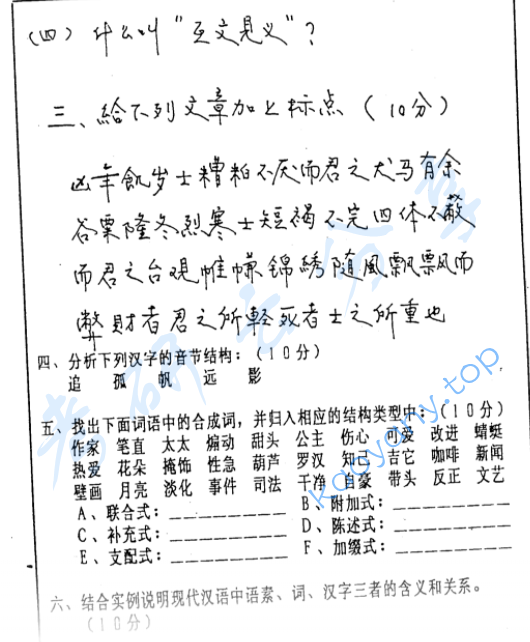 (四) 什么叫“互文见义”?
三、給下列文章加上标点 (10分)
凶年飢岁士糟粕不厌而君之犬马有余
谷粟隆冬烈寒士短褐不完四体不蔽
而君之台观帷幙錦綉随風飘飘而
弊財者君之所輕死者士之所重也
四、分析下列汉字的音节结构:(10分)
追 孤 帆 远 影
五、找出下面词语中的合成词,并归入相应的结构类型中:(10分)
作家 笔直 太太 煽动 甜头 公主 伤心 可爱 改进 蜻蜓
热爱 花朵 掩饰 性急 葫芦 罗汉 知己 吉它 咖啡 新闻
壁画 月亮 淡化 事件 司法 干净 自豪 带头 反正 文艺
A、联合式: B、附加式:
C、补充式: D、陈述式:
E、支配式: F、加缀式:
六、结合实例说明现代汉语中语素、词、汉字三者的含义和关系。
(10分)
kaoyany.top